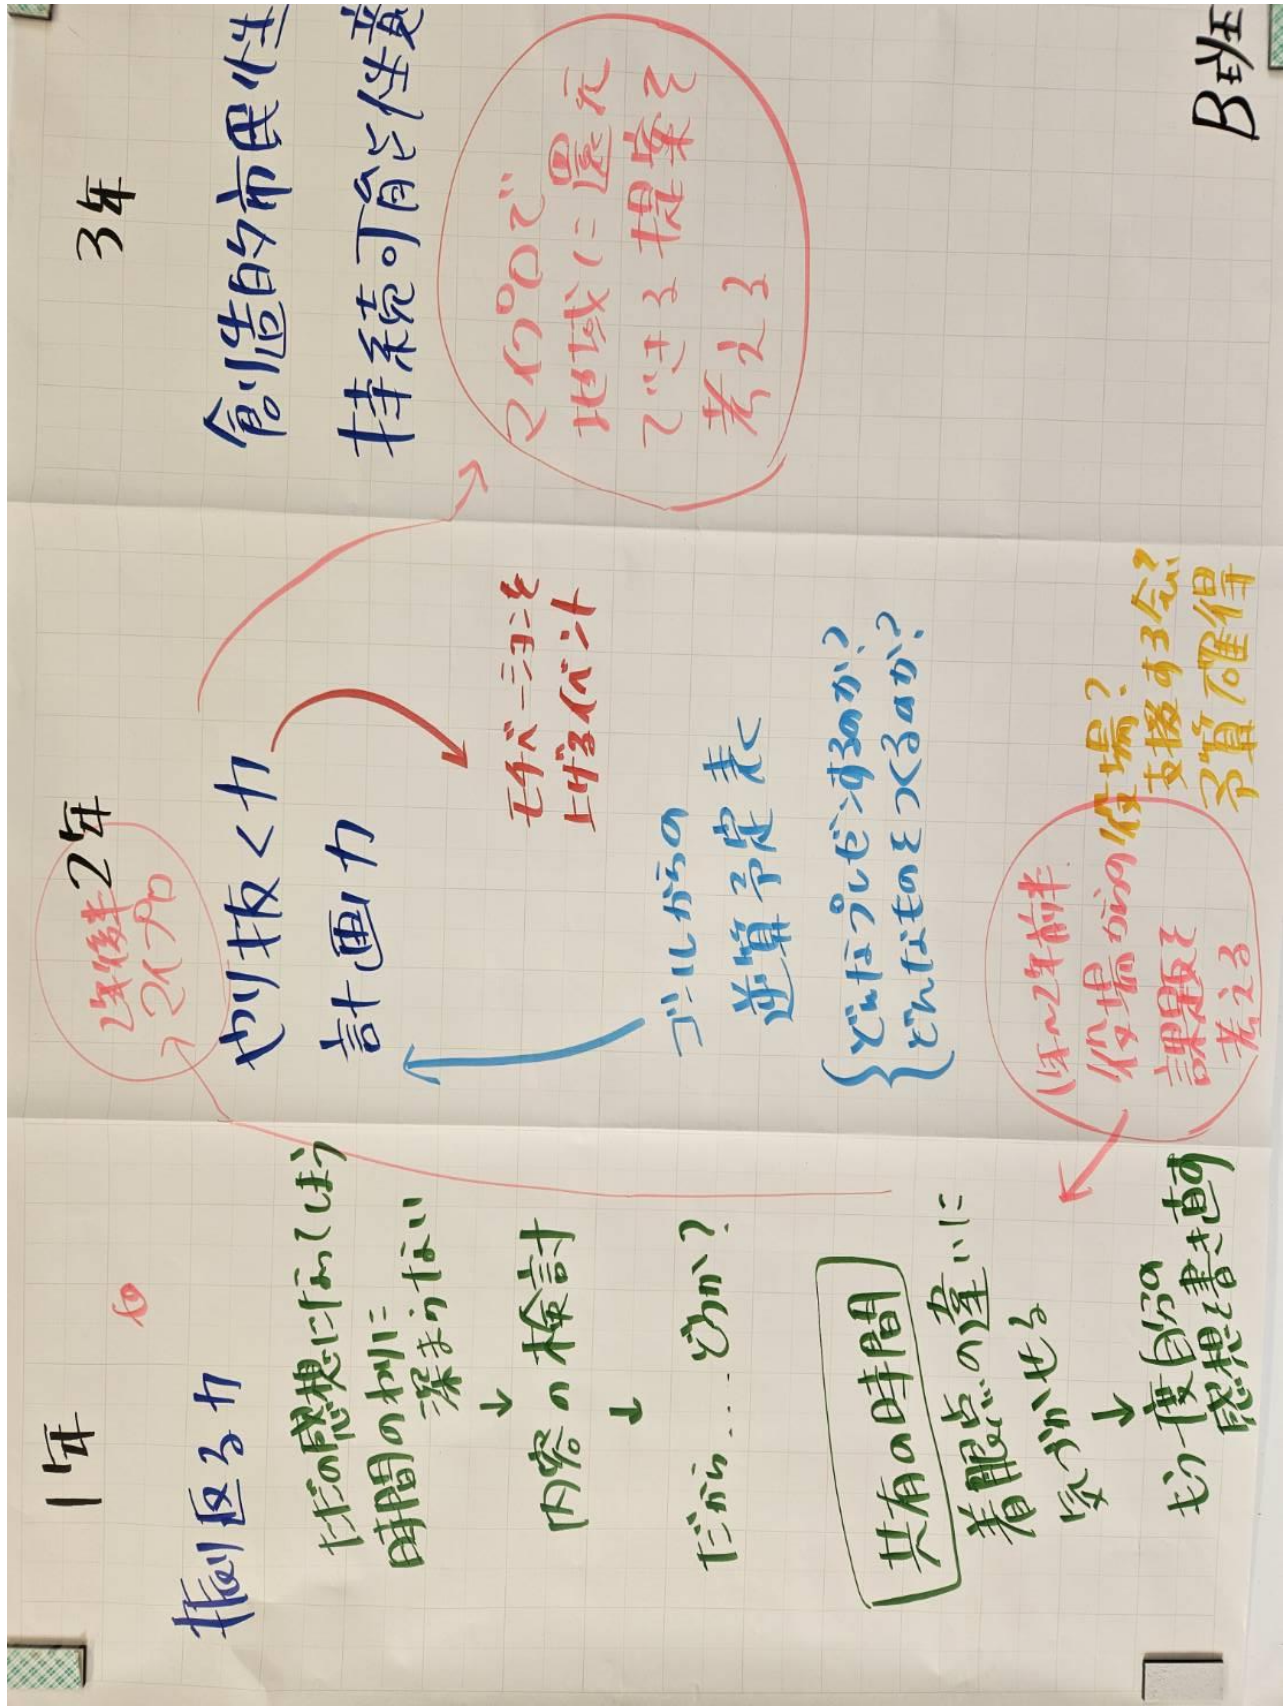 1年
振り返る力
ただの感想になってしまう
時間の割に
深まらない
↓
内容の検討
↓
だから....どうか?
共有の時間
着眼点の違いに
気づかせる
↓
もう一度自分の
感想を書き直す
2年
2年後半
マイプロ
やり抜く力
計画力
モチベーションを
上げるイベント
ゴールからの
逆算予定表
どんなプレゼンするのか?
どんなものをつくるのか?
1年〜2年前半
役場からの
課題を
考える
役場?
支援する会?
予算確保
3年
創造的市民性
持続可能な
マイプロで
地域に還元
できる提案を
考える
B班